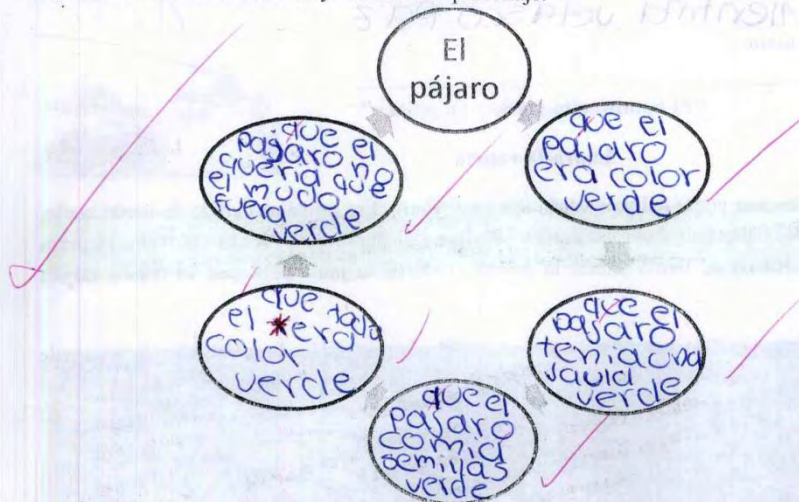 El
pájaro
que el
pajaro
era color
verde
que el
pajaro
tenia una
Jaula
verde
que el
pajaro
comia
semillas
verde
que todo
el era
color
verde
que el
pajaro no
queria que
el mudo
fuera
verde